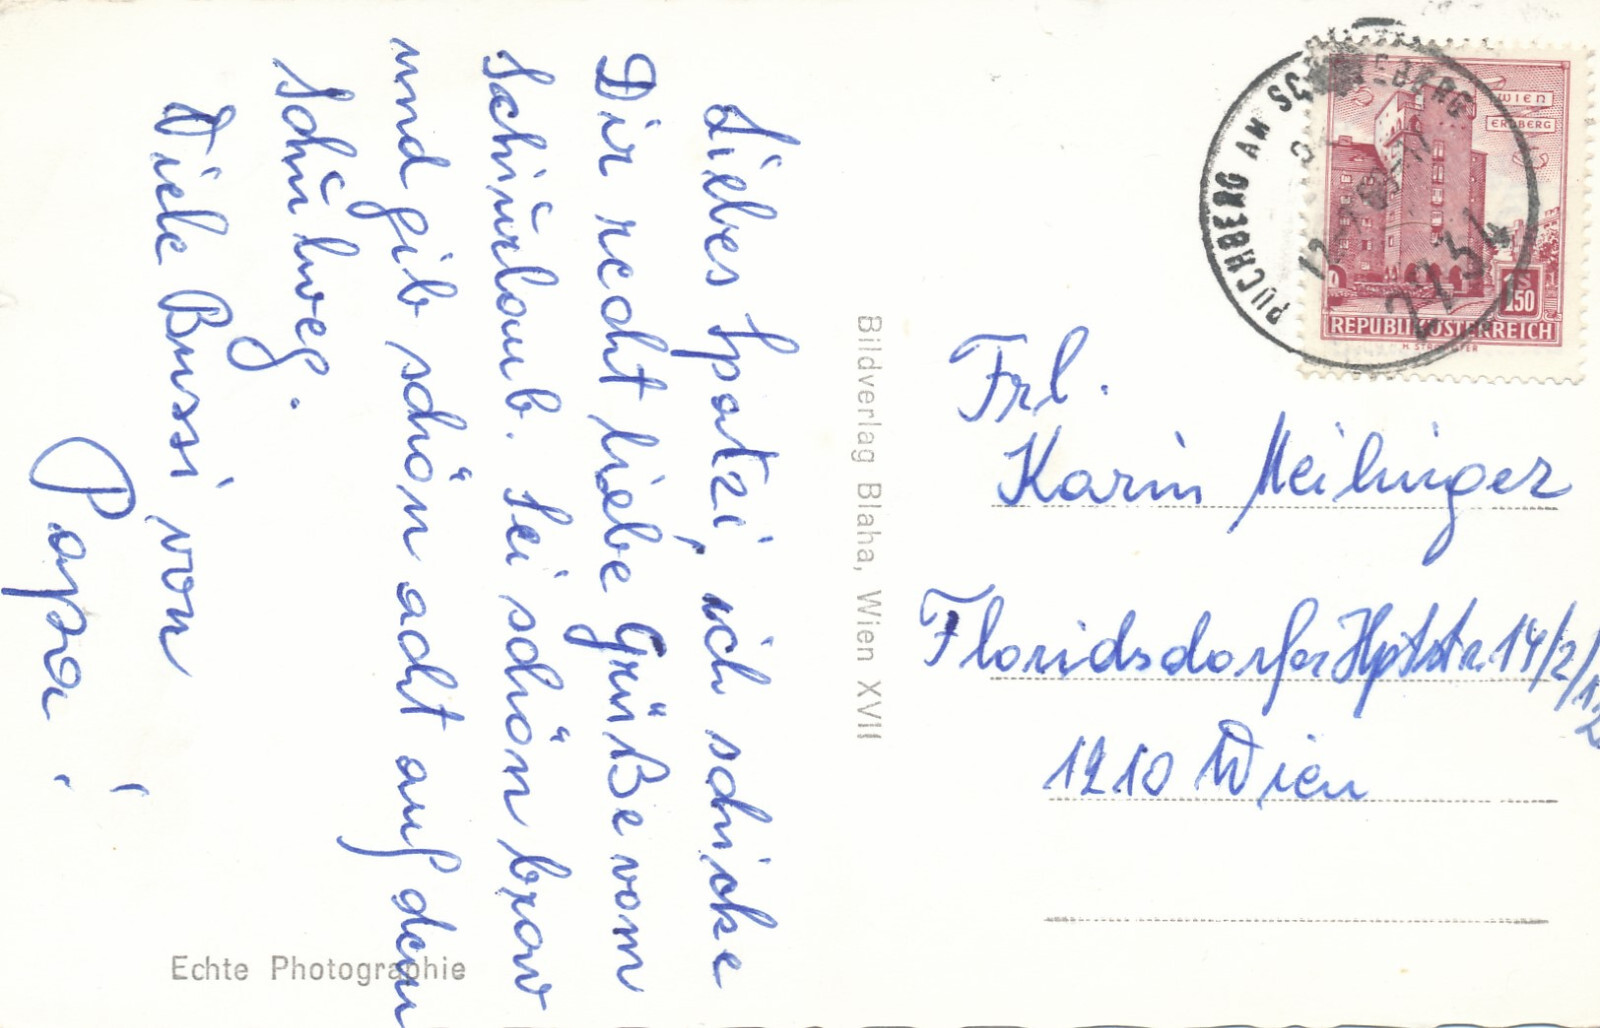 Liebes Spatzi, ich schicke
Dir recht liebe Grüße vom
Schiurlaub. Sei schön brav
und gib schön acht auf dem
Schulweg.
Viele Bussi von
Papa!
Echte Photographie
Bildverlag Blaha, Wien XVII
PUCHBERG AM SCHNEEBERG
2734
WIEN
ERDBERG
1.50
REPUBLIK ÖSTERREICH
Frl.
Karin Meilinger
Floridsdorfer Hptstr. 14/2/
1210 Wien